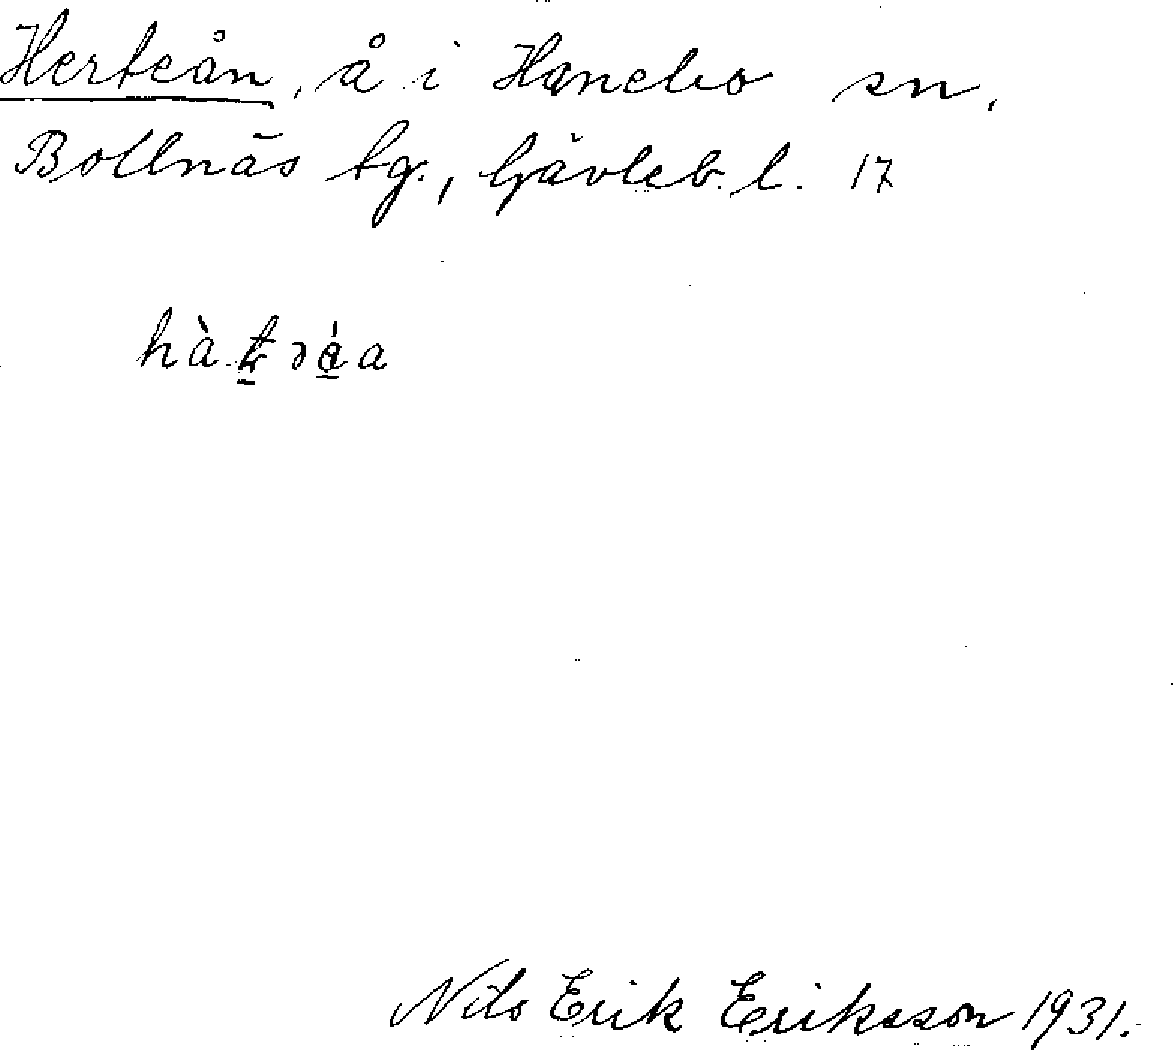 Herteån, å i Hanebo sn,
Bollnäs tg., Gävleb. l. 17
Nils Erik Eriksson 1931.